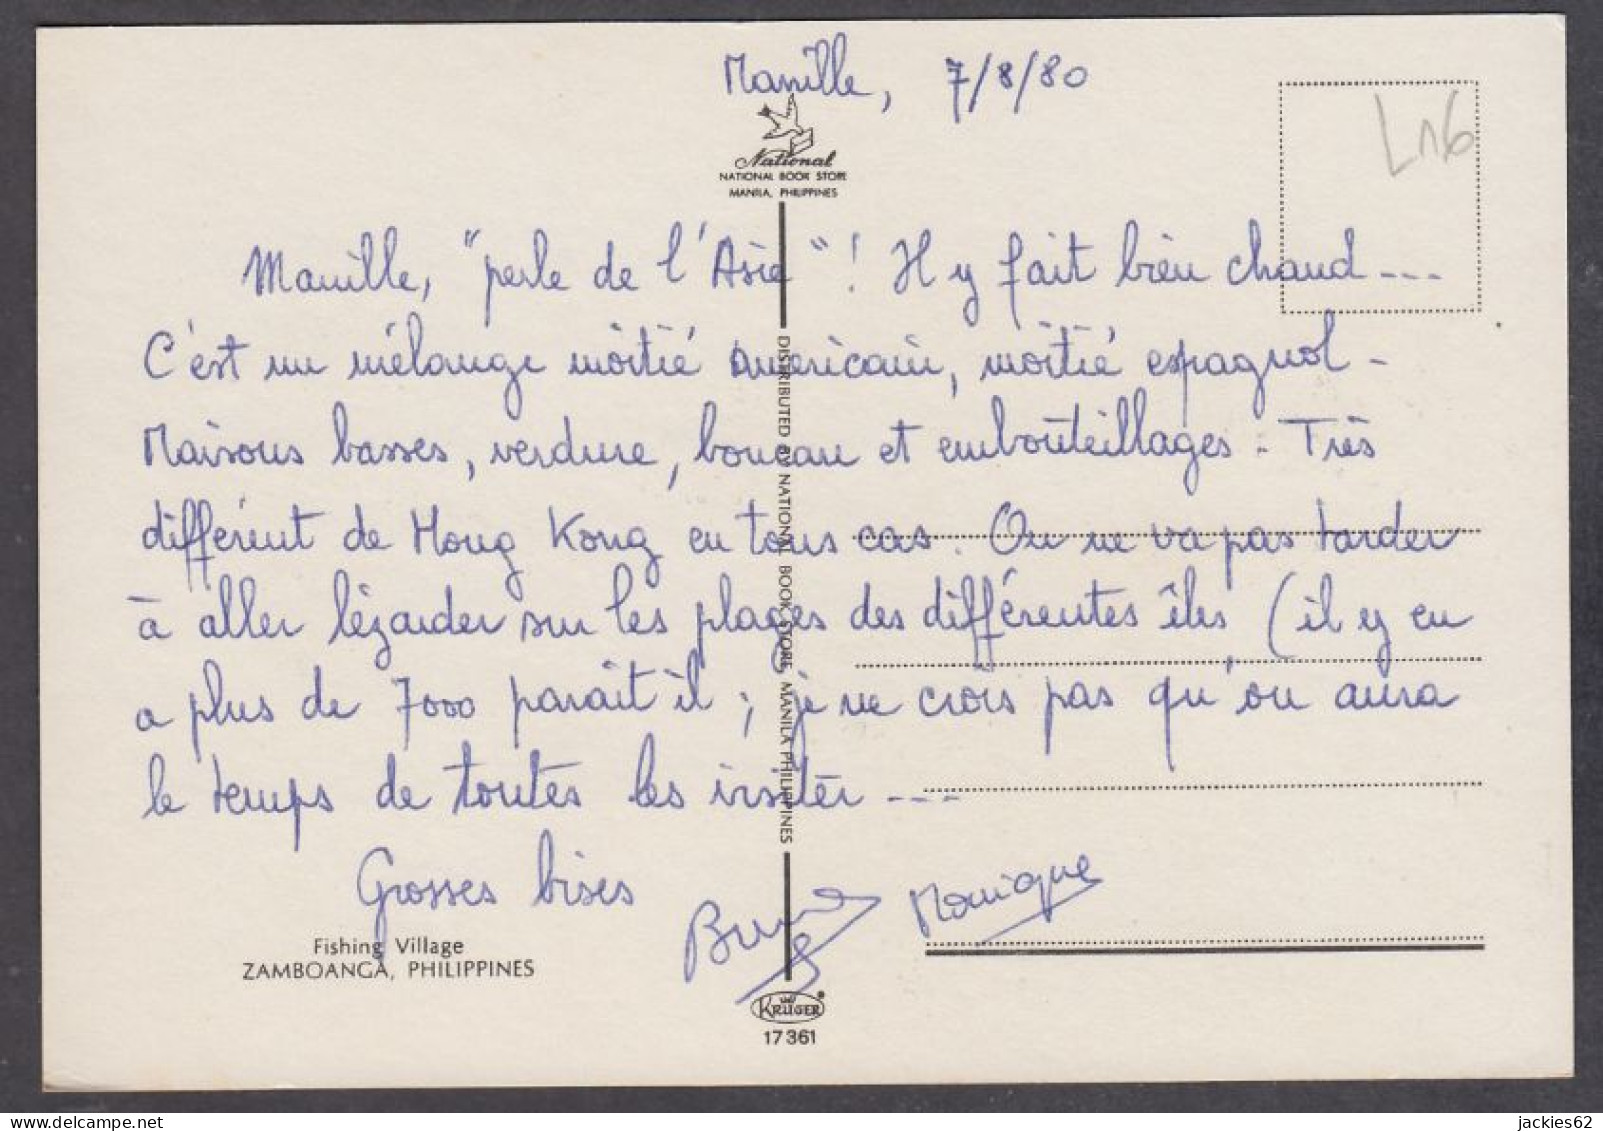 Manille, 7/8/80
National
NATIONAL BOOK STORE
MANILA, PHILIPPINES
Manille, "perle de l'Asie"! Il y fait bien chaud ---
C'est un mélange moitié américain, moitié espagnol -
Maisons basses, verdure, boucan et embouteillages - Très
différent de Hong Kong en tous cas. On ne va pas tarder
à aller lézarder sur les plages des différentes îles (il y en
a plus de 7000 parait il ; je ne crois pas qu'on aura
le temps de toutes les visiter ---
Grosses bises
Bruno
Monique
DISTRIBUTED BY NATIONAL BOOK STORE, MANILA PHILIPPINES
Fishing Village
ZAMBOANGA, PHILIPPINES
KRÜGER
17361
jackies62